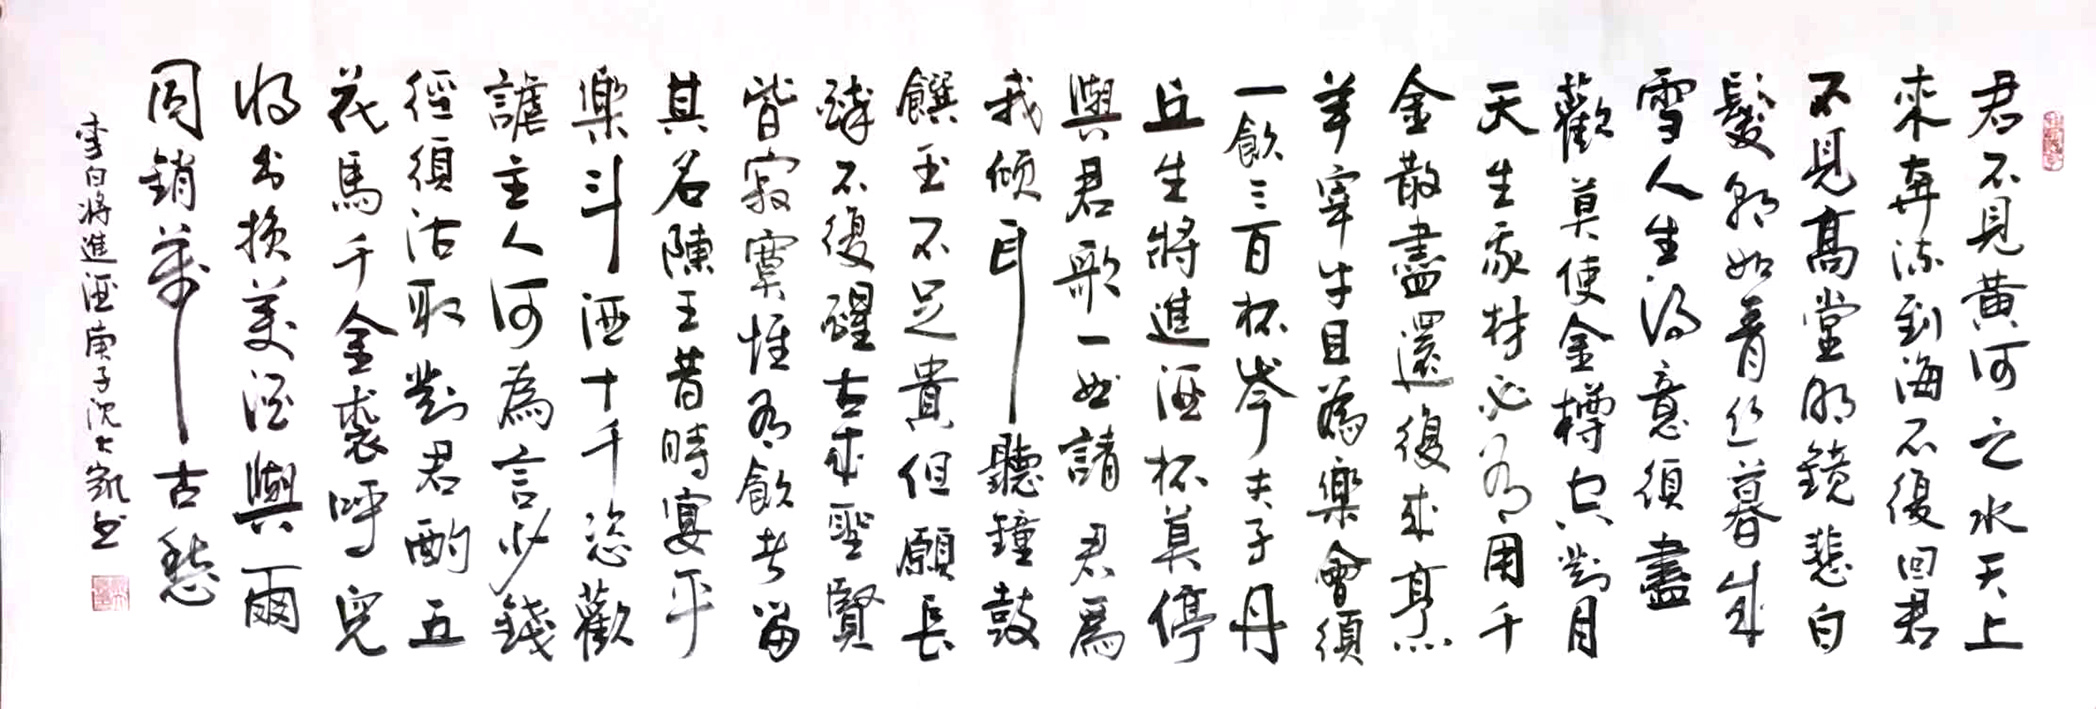 君不見黃河之水天上
來奔流到海不復回君
不見高堂明鏡悲白
髮朝如青絲暮成
雪人生得意須盡
歡莫使金樽空對月
天生我材必有用千
金散盡還復來烹
羊宰牛且為樂會須
一飲三百杯岑夫子丹
丘生將進酒杯莫停
與君歌一曲請君為
我傾耳聽鐘鼓
饌玉不足貴但願長
醉不復醒古來聖賢
皆寂寞惟有飲者留
其名陳王昔時宴平
樂斗酒十千恣歡
謔主人何為言少錢
徑須沽取對君酌五
花馬千金裘呼兒
將出換美酒與爾
同銷萬古愁
李白將進酒庚子沈大凱書